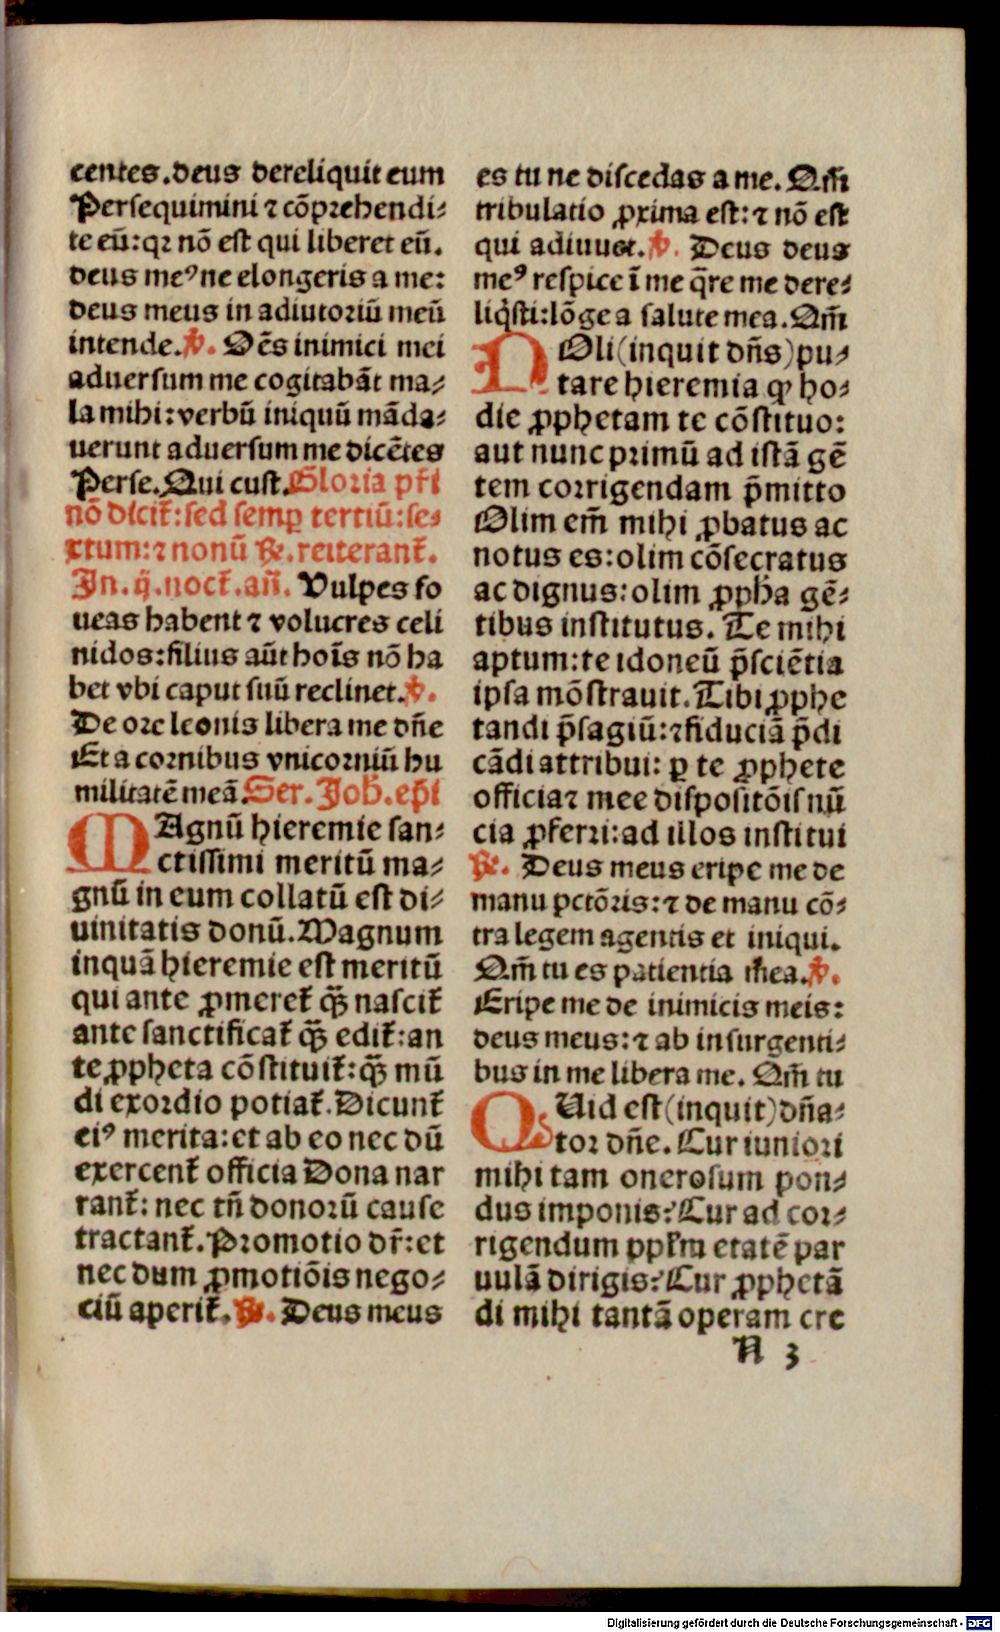 centes.deus dereliquit eum
Persequimini ⁊ cõprehendi⸗
te eũ:qꝛ nõ est qui liberet eũ.
deus meꝰ ne elongeris a me:
deus meus in adiutoriũ meũ
intende.℣. Oẽs inimici mei
aduersum me cogitabãt ma⸗
la mihi:verbũ iniquũ mãda⸗
uerunt aduersum me dicẽtes
Perse.Qui cust.Gloria pr̃i
nõ dicit̃:sed semꝑ tertiũ:se⸗
xtum:⁊ nonũ ℟.reiterant̃.
In.ij.noct̃.añ. Vulpes fo
ueas habent ⁊ volucres celi
nidos:filius aũt hoĩs nõ ha
bet vbi caput suũ reclinet.℣.
De ore leonis libera me dñe
Et a cornibus vnicorniũ hu
militatẽ meã.Ser.Joh̃.ep̃i
MAgnũ hieremie san⸗
ctissimi meritũ ma⸗
gnũ in eum collatũ est di⸗
uinitatis donũ.Magnum
inquã hieremie est meritũ
qui ante ꝓmeret̃ q̃ꝫ nascit̃
ante sanctificat̃ q̃ꝫ edit̃:an
te ꝓpheta cõstituit̃:q̃ꝫ mũ
di exordio potiat̃.Dicunt̃
eiꝰ merita:et ab eo nec dũ
exercent̃ officia Dona nar
rant̃: nec tñ donorũ cause
tractant̃.Promotio dr̃:et
nec dum ꝓmotiõis nego⸗
ciũ aperit̃.℟. Deus meus
es tu ne discedas a me. Qm̃
tribulatio ꝓxima est:⁊ nõ est
qui adiuuet.℣. Deus deus
meꝰ respice ĩ me q̃re me dere⸗
liq̃sti:lõge a salute mea.Qm̃
NOli(inquit dñs)pu⸗
tare hieremia ꝙ ho⸗
die ꝓphetam te cõstituo:
aut nunc primũ ad istã gẽ
tem corrigendam p̃mitto
Olim em̃ mihi ꝓbatus ac
notus es:olim cõsecratus
ac dignus:olim ꝓph̃a gẽ⸗
tibus institutus. Te mihi
aptum:te idoneũ p̃sciẽtia
ipsa mõstrauit.Tibi ꝓphe
tandi p̃sagiũ:⁊fiduciã p̃di
cãdi attribui: ꝑ te ꝓphete
officia⁊ mee dispositõis nũ
cia ꝓferri:ad illos institui
℟. Deus meus eripe me de
manu pctõris:⁊ de manu cõ⸗
tra legem agentis et iniqui.
Qm̃ tu es patientia mea.℣.
Eripe me de inimicis meis:
deus meus:⁊ ab insurgenti⸗
bus in me libera me. Qm̃ tu
QUid est(inquit)dña⸗
tor dñe.Cur iuniori
mihi tam onerosum pon⸗
dus imponis?Cur ad cor⸗
rigendum ppl̃m etatẽ par
uulã dirigis?Cur ꝓphetã
di mihi tantã operam cre
N 3
Digitalisierung gefördert durch die Deutsche Forschungsgemeinschaft - DFG